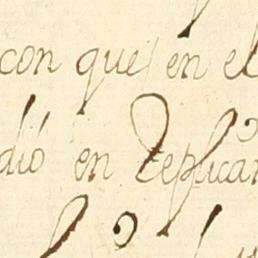 con que en el
dió en replicar